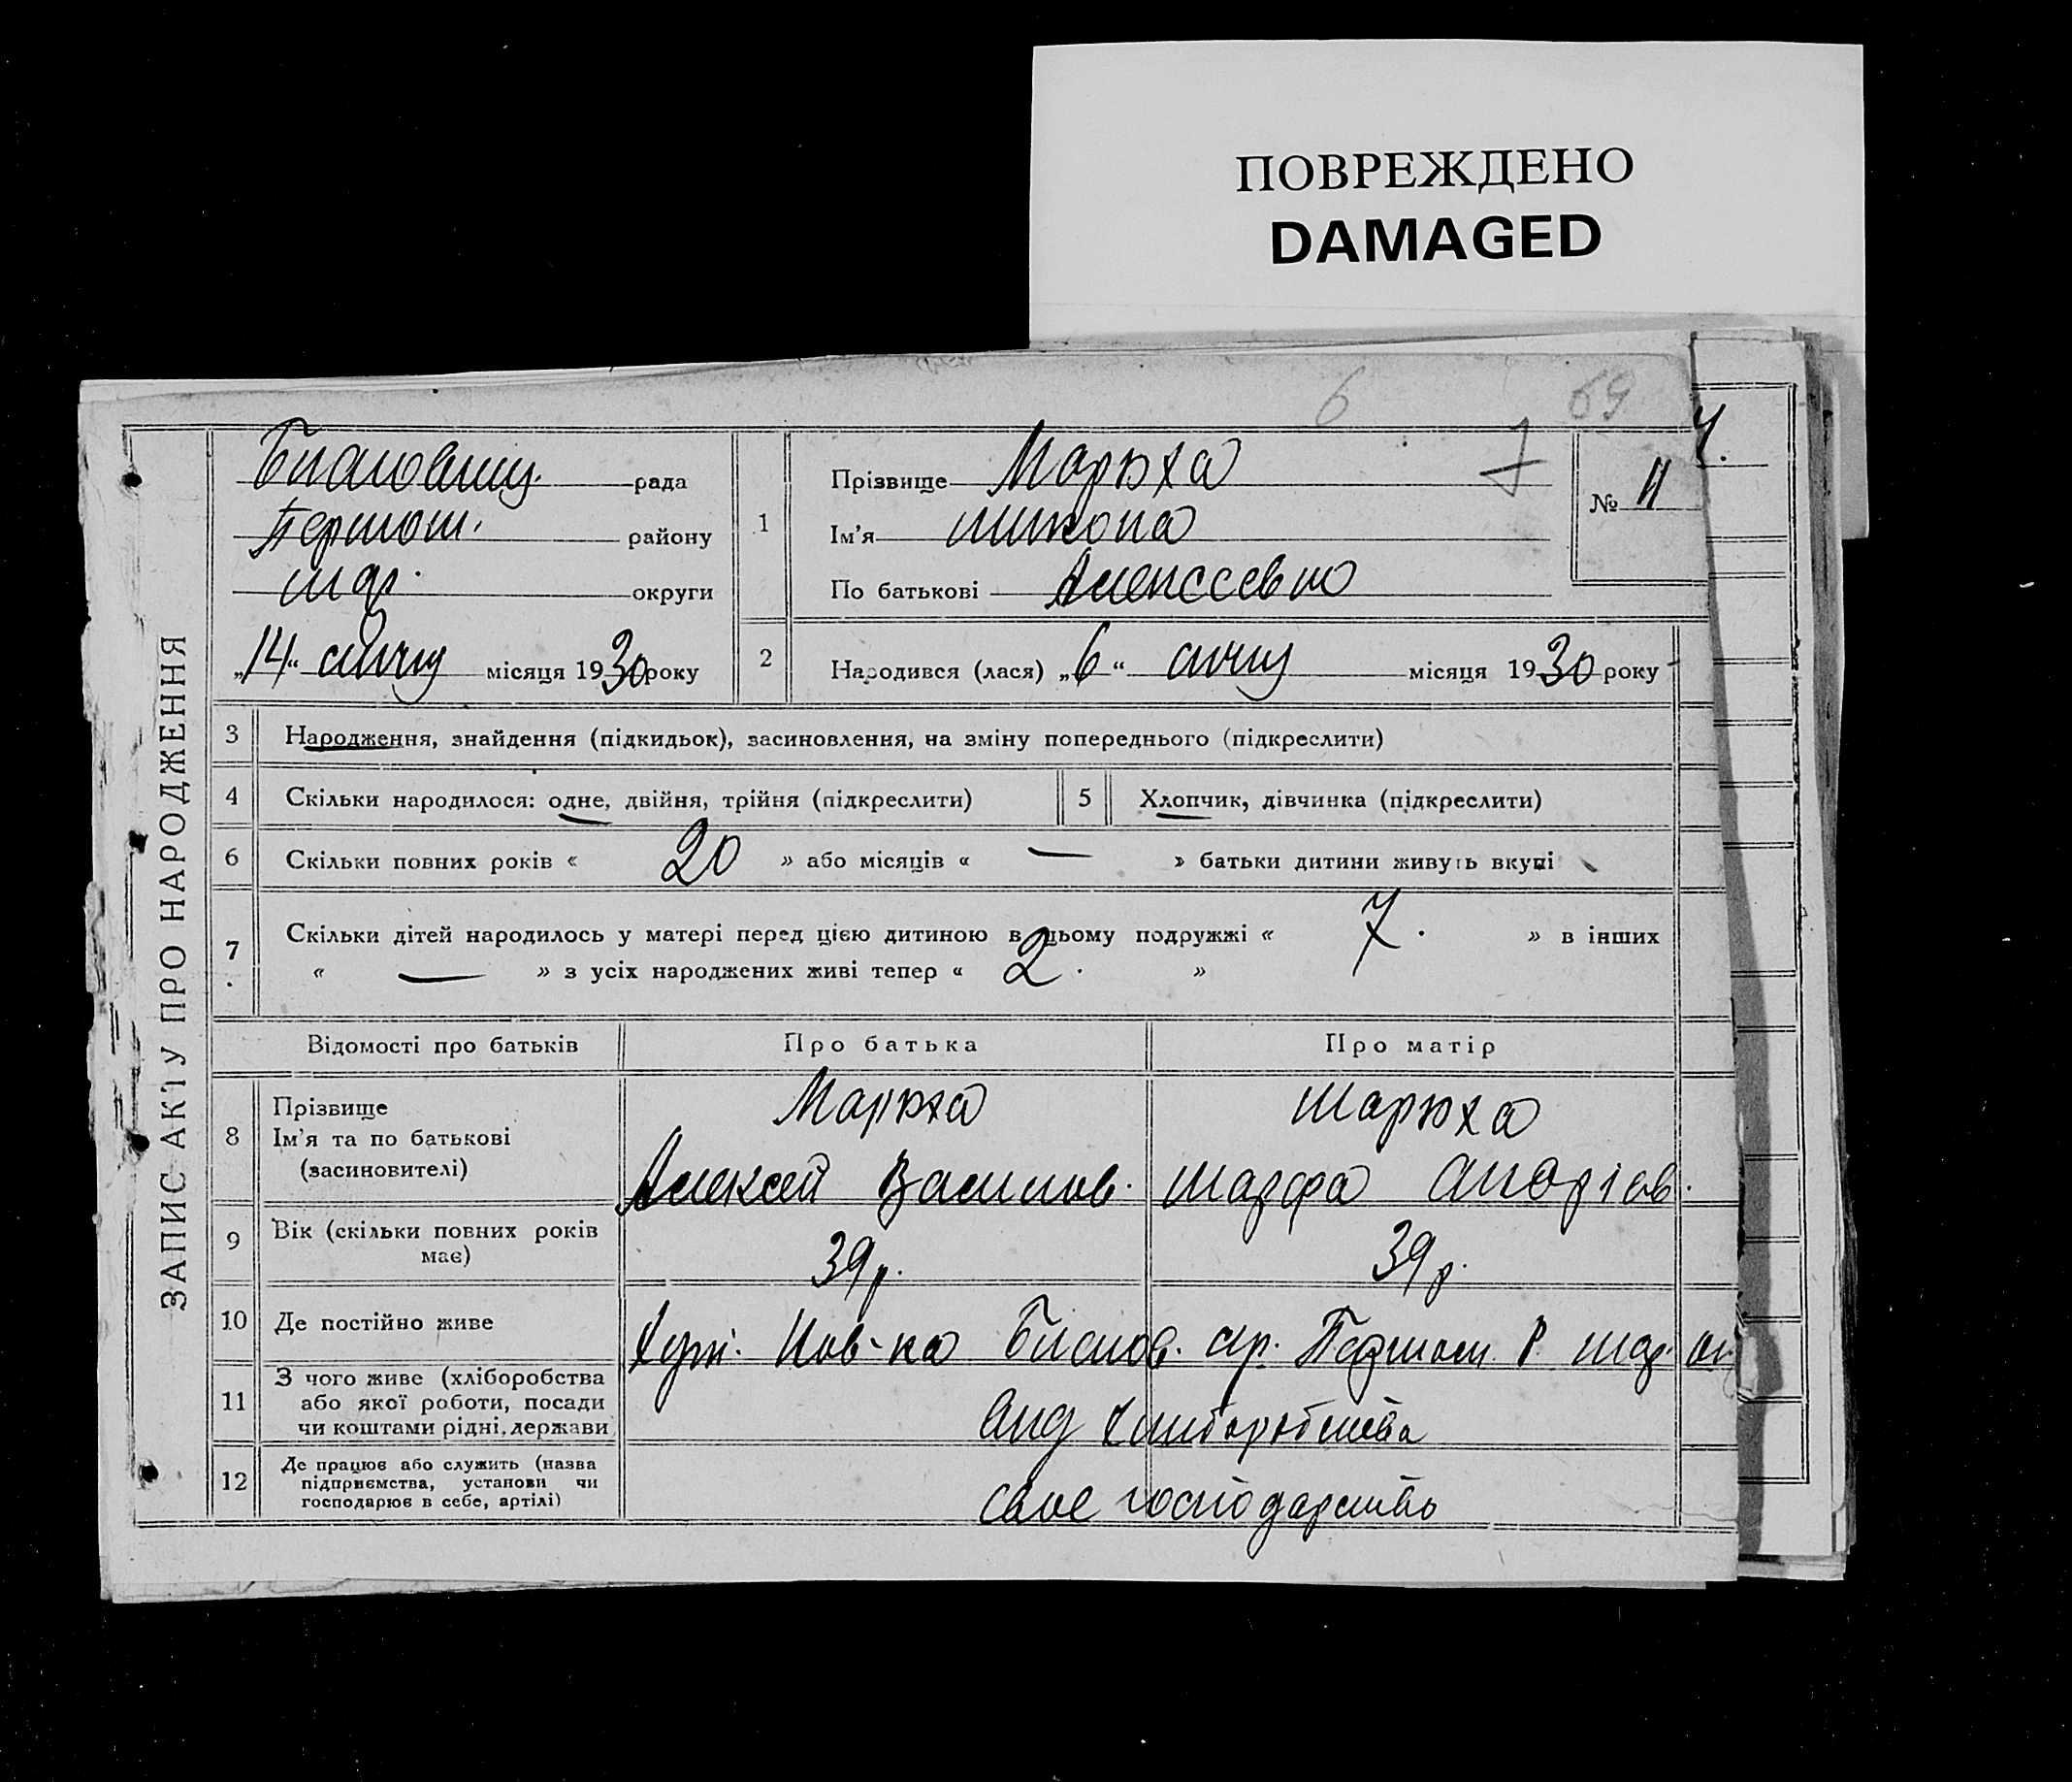 ПОВРЕЖДЕНО
DAMAGED
6 69
ЗАПИС АКТУ ПРО НАРОДЖЕННЯ
рада
району
округи
„14“ січня місяця 1930 року
1
Прізвище Марюха
Ім'я Микола
По батькові Алексеевич
№ 11
2
Народився (лася) „6“ січня місяця 1930 року
3 Народження, знайдення (підкидьок), засиновлення, на зміну попереднього (підкреслити)
4 Скільки народилося: одне, двійня, трійня (підкреслити)
5 Хлопчик, дівчинка (підкреслити)
6 Скільки повних років « 20 » або місяців « — » батьки дитини живуть вкупі
7 Скільки дітей народилось у матері перед цією дитиною в цьому подружжі « 7. » в інших
« — » з усіх народжених живі тепер « 2. »
Відомості про батьків Про батька Про матір
8 Прізвище Марюха Марюха
Ім'я та по батькові
(засиновителі) Алексей Васильов. Марфа Андріев.
9 Вік (скільки повних років має) 39 р. 39 р.
10 Де постійно живе Хут. Нов-ка
11 З чого живе (хліборобства або якої роботи, посади чи коштами рідні, держави від хліборобства
12 Де працює або служить (назва підприємства, установи чи господарює в себе, артілі) своє господарство